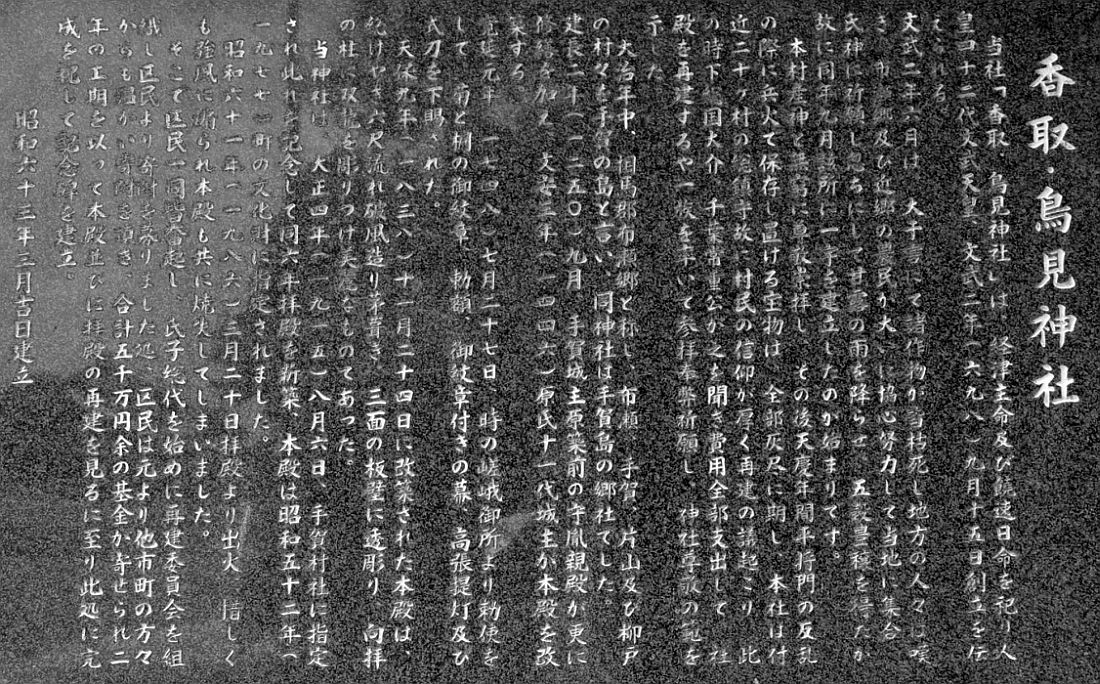 香取・鳥見神社
当社「香取・鳥見神社」は、経津主命及び饒速日命を祀り人
皇四十二代文武天皇、文武二年(六九八)九月十五日創立を伝
えられる。
文武二年六月は、大干害にて諸作物が皆枯死し地方の人々は嘆
き、布 郷及び近郷の農民が大いに協心努力して当地に集合
氏神に祈願し忽ちにして甘露の雨を降らせ、五穀豊穣を得たが
故に同年九月該所に一宇を建立したのが始まりです。
本村産神と無 に尊敬崇拝し、その後天慶年間平将門の反乱
の際に兵火で保存し置ける宝物は、全部灰尽に期し、本社は付
近二十ヶ村の総鎮守故に村民の信仰が厚く再建の議起こり、此
の時下総国大介、千葉常重公が之を聞き費用全部支出して、社
殿を再建するや一族を率いて参拝奉弊祈願し、神社尊敬の範を
示した。
大治年中、相馬郡布瀬郷と称し、布瀬、手賀、片山及び柳戸
の村々を手賀の島と言い、同神社は手賀島の郷社でした。
建長二年(一二五〇)九月、手賀城主原築前の守胤親殿が更に
修繕を加え、文安三年(一四四六)原氏十一代城主が本殿を改
築する。
寛延元年(一七四八)七月二十七日、時の嵯峨御所より勅使を
して、菊と桐の御紋章、勅額、御紋章付きの幕、高張提灯及び
太刀を下賜された。
天保九年(一八三八)十一月二十四日に改築された本殿は、
総けやき六尺流れ破風造り茅葺き、三面の板壁に透彫り、向拝
の柱、双龍を彫りつけ美麗なものであった。
当神社は、大正四年(一九一五)八月六日、手賀村社に指定
され此れを記念して同六年拝殿を新築、本殿は昭和五十二年(
一九七七)町の文化財に指定されました。
昭和六十一年(一九八六)三月二十日拝殿より出火、惜しく
も強風に煽られ本殿も共に焼失してしまいました。
そこで区民一同皆奮起し、氏子総代を始めに再建委員会を組
織し区民より寄附を募りました処、区民は元より他市町の方々
からも温かい寄附を頂き、合計五千万円余の基金が寄せられ二
年の工期を以って本殿並びに拝殿の再建を見るに至り此処に完
成を祝して記念碑を建立
昭和六十三年三月吉日建立